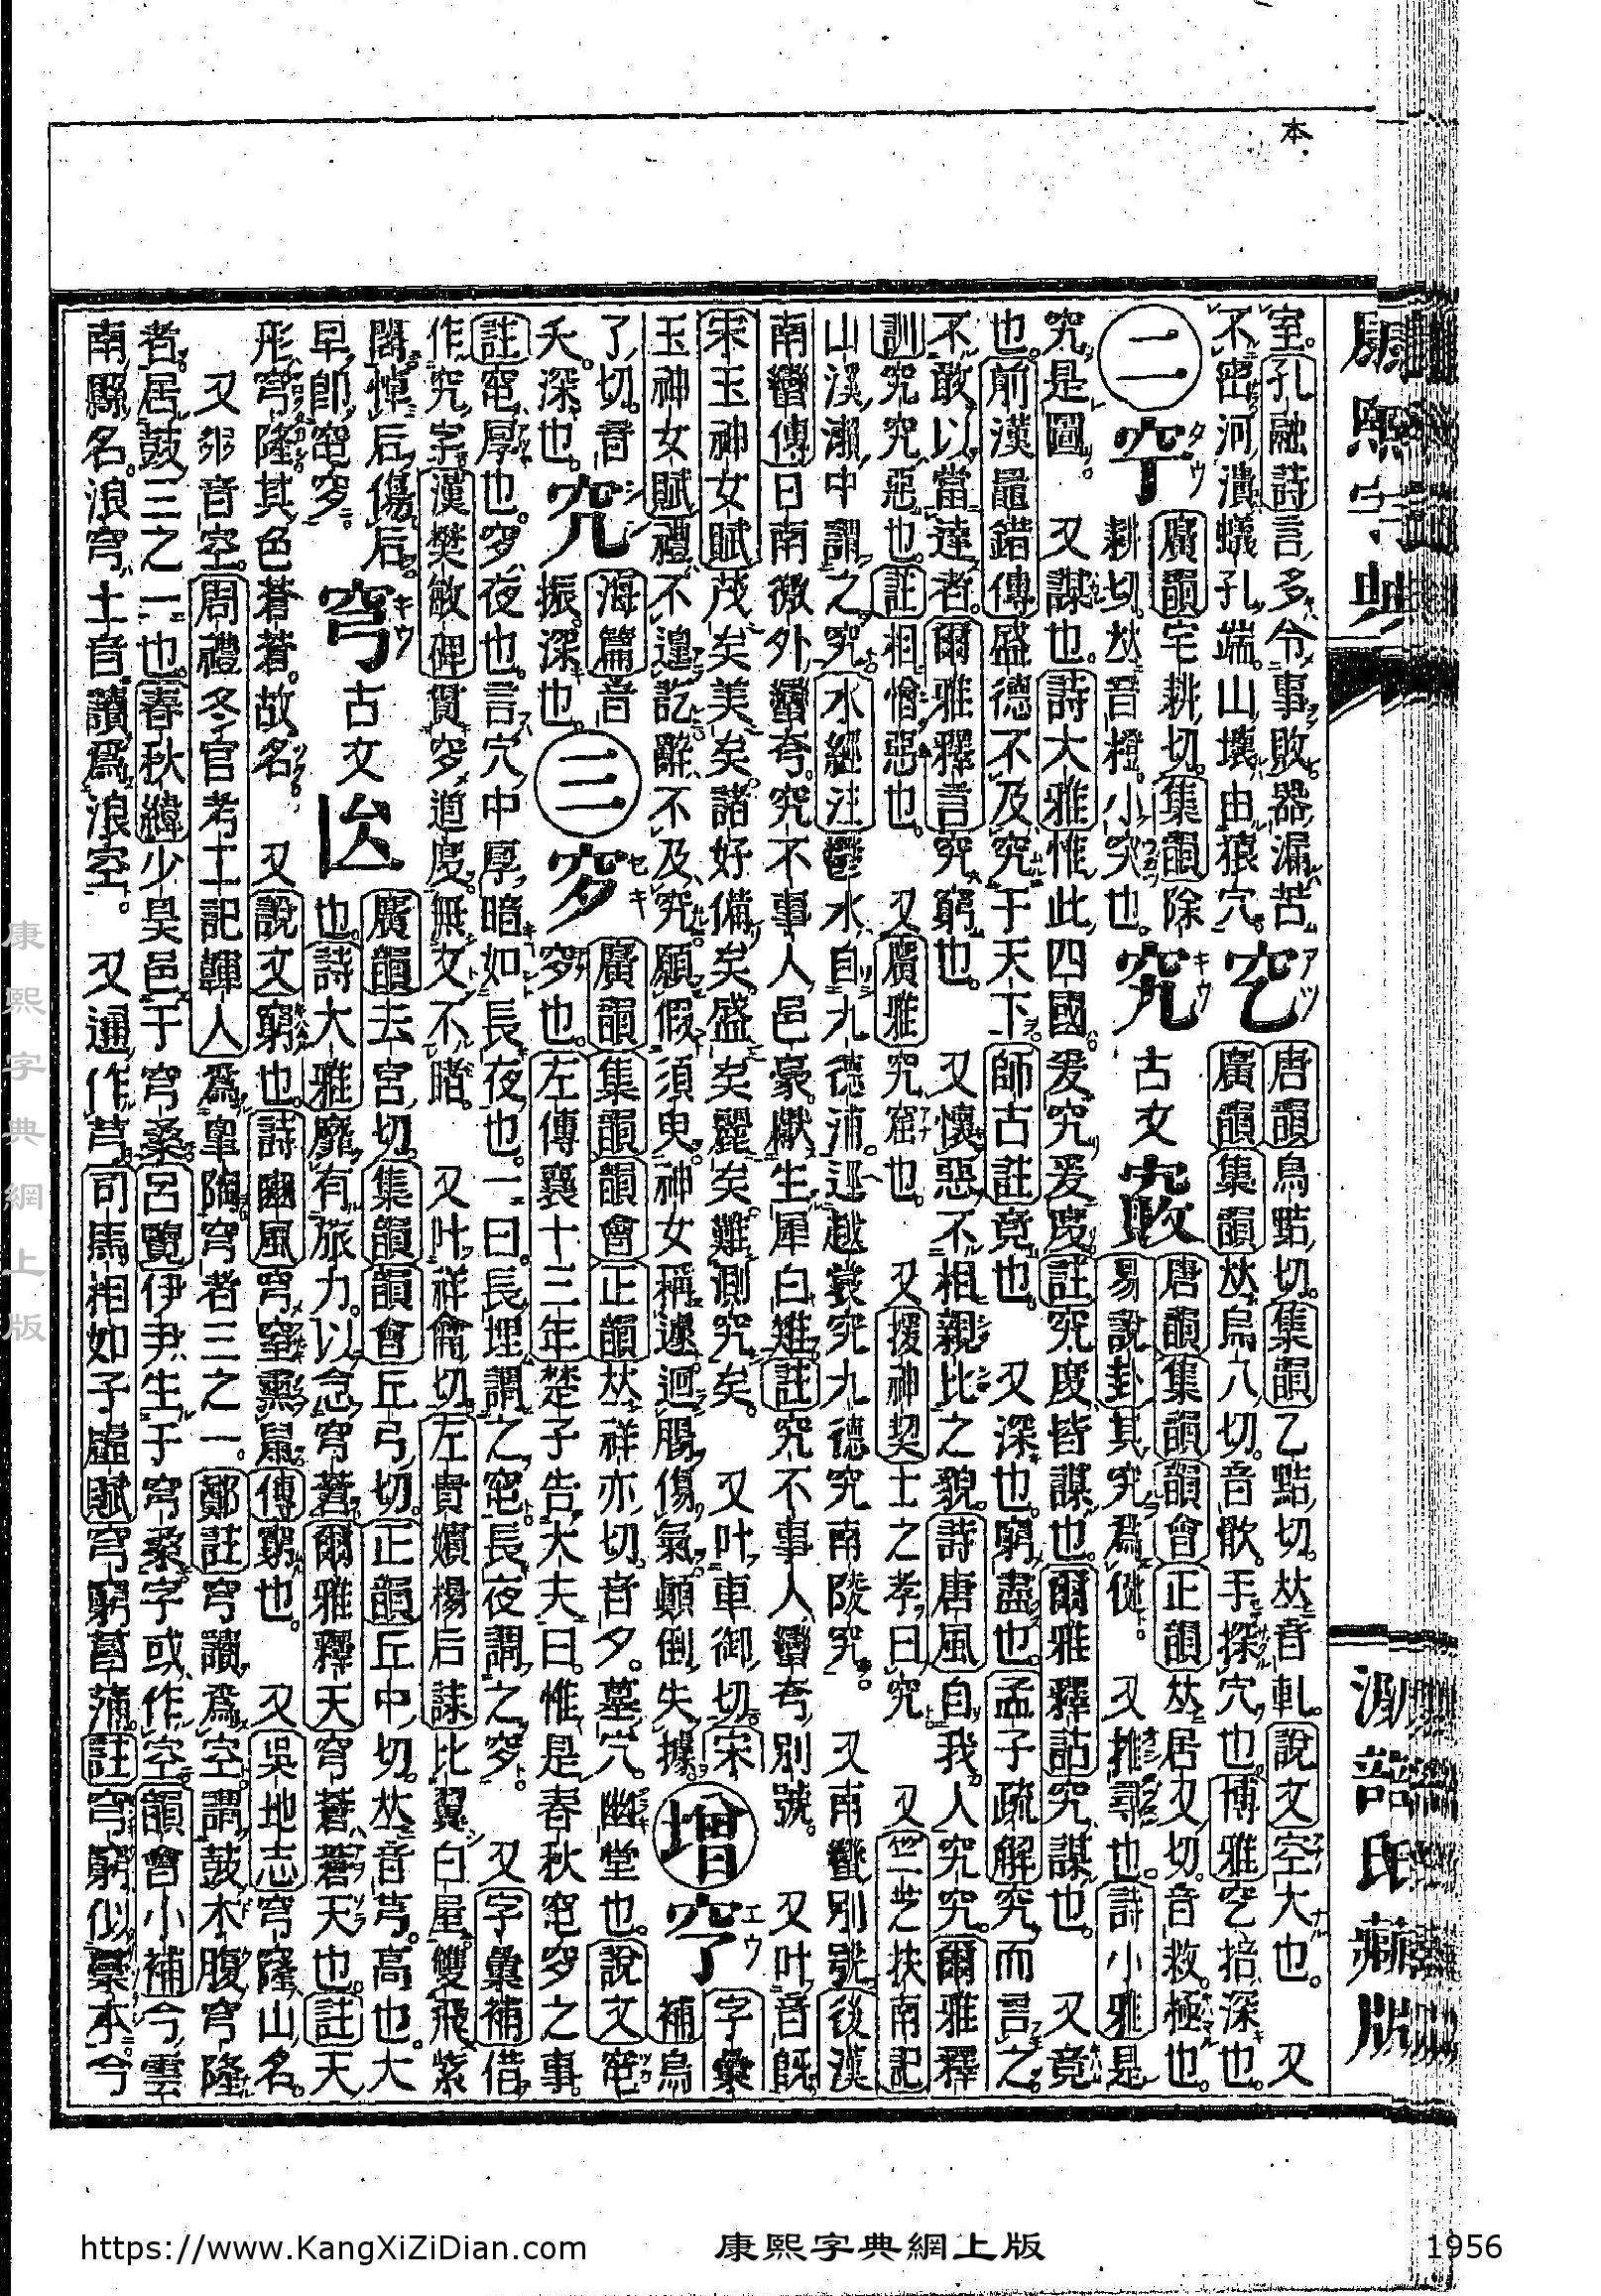 本
康熙字典
氏藏版
室。孔融詩言多令事敗器漏苦
不密河潰蟻孔端。山壞由猿穴。
穵 アツ
唐韻烏黠切。集韻乙黠切。𠀤音軋。說文空大也。 又
廣韻集韻𠀤烏八切。音㪚。手探穴也。博雅穵掊深也。
二
タウ
廣韻宅耕切。集韻除
耕切。𠀤音橙。小突也。
究 キウ
古文
唐韻集韻韻會正韻𠀤居又切。音救。極也。
易說卦其究爲健。 又推尋也。詩小雅是
究是圖。 又謀也。詩大雅惟此四國。爰究爰度。註究度皆謀也。爾雅釋詁究謀也。 又竟
也。前漢鼂錯傳盛德不及究于天下。師古註竟也。 又深也。窮盡也。孟子疏解究而言之。
不敢以當達者。爾雅釋言究窮也。 又懷惡不相親比之貌。詩唐風自我人究究。爾雅釋
訓究究惡也。註相憎惡也。 又廣雅究窟也。 又援神契士之孝曰究。 又竺芝扶南記
山溪瀨中謂之究。水經注鬱水自九德浦。逕越裳究九德究南陵究。 又南蠻別號。後漢
南蠻傳日南徼外蠻夸究不事人邑豪獻生犀白雉。註究不事人蠻夸別號。 又叶音旣。
宋玉神女賦茂矣美矣。諸好備矣。盛矣麗矣。難測究矣。 又叶車御切。宋
玉神女賦禮不遑訖。辭不及究。願假須臾。神女稱遽。迴腸傷氣。顚倒失據。
增
エウ
字彙
補烏
了切。音
夭。深也。
海篇音
振。深也。
三
穸 セキ
廣韻集韻韻會正韻𠀤祥亦切。音夕。墓穴。幽堂也。說文窀
穸也。左傳襄十三年楚子告大夫曰。惟是春秋窀穸之事。
註窀厚也。穸夜也。言穴中厚暗如長夜也。一曰。長埋謂之窀。長夜謂之穸。 又字彙補借
作究字。漢樊敏碑貫穸道度。無文不睹。 又叶祥龠切。左貴嬪楊后誄比翼白屋。雙飛紫
閣。悼后傷后。
早卽窀穸。
穹 キウ
古文
廣韻去宮切。集韻韻會丘弓切。正韻丘中切。𠀤音芎。高也。大
也。詩大雅靡有旅力。以念穹蒼。爾雅釋天穹蒼蒼天也。註天
形穹隆其色蒼蒼。故名。 又說文窮也。詩豳風穹窒熏鼠。傳窮也。 又吳地志穹隆山名。
又音空。周禮冬官考工記韗人爲臯陶穹者三之一。鄭註穹讀爲空。謂鼓木腹穹隆
者。居鼓三之一也。春秋緯少昊邑于穹桑。呂覽伊尹生于穹桑。字或作空。韻會小補今雲
南縣名。浪穹土音讀爲浪空。 又通作芎。司馬相如子虛賦穹窮菖蒲。註穹窮似藁本。今
康熙字典網上版
https://www.KangXiZiDian.com
康熙字典網上版
1956